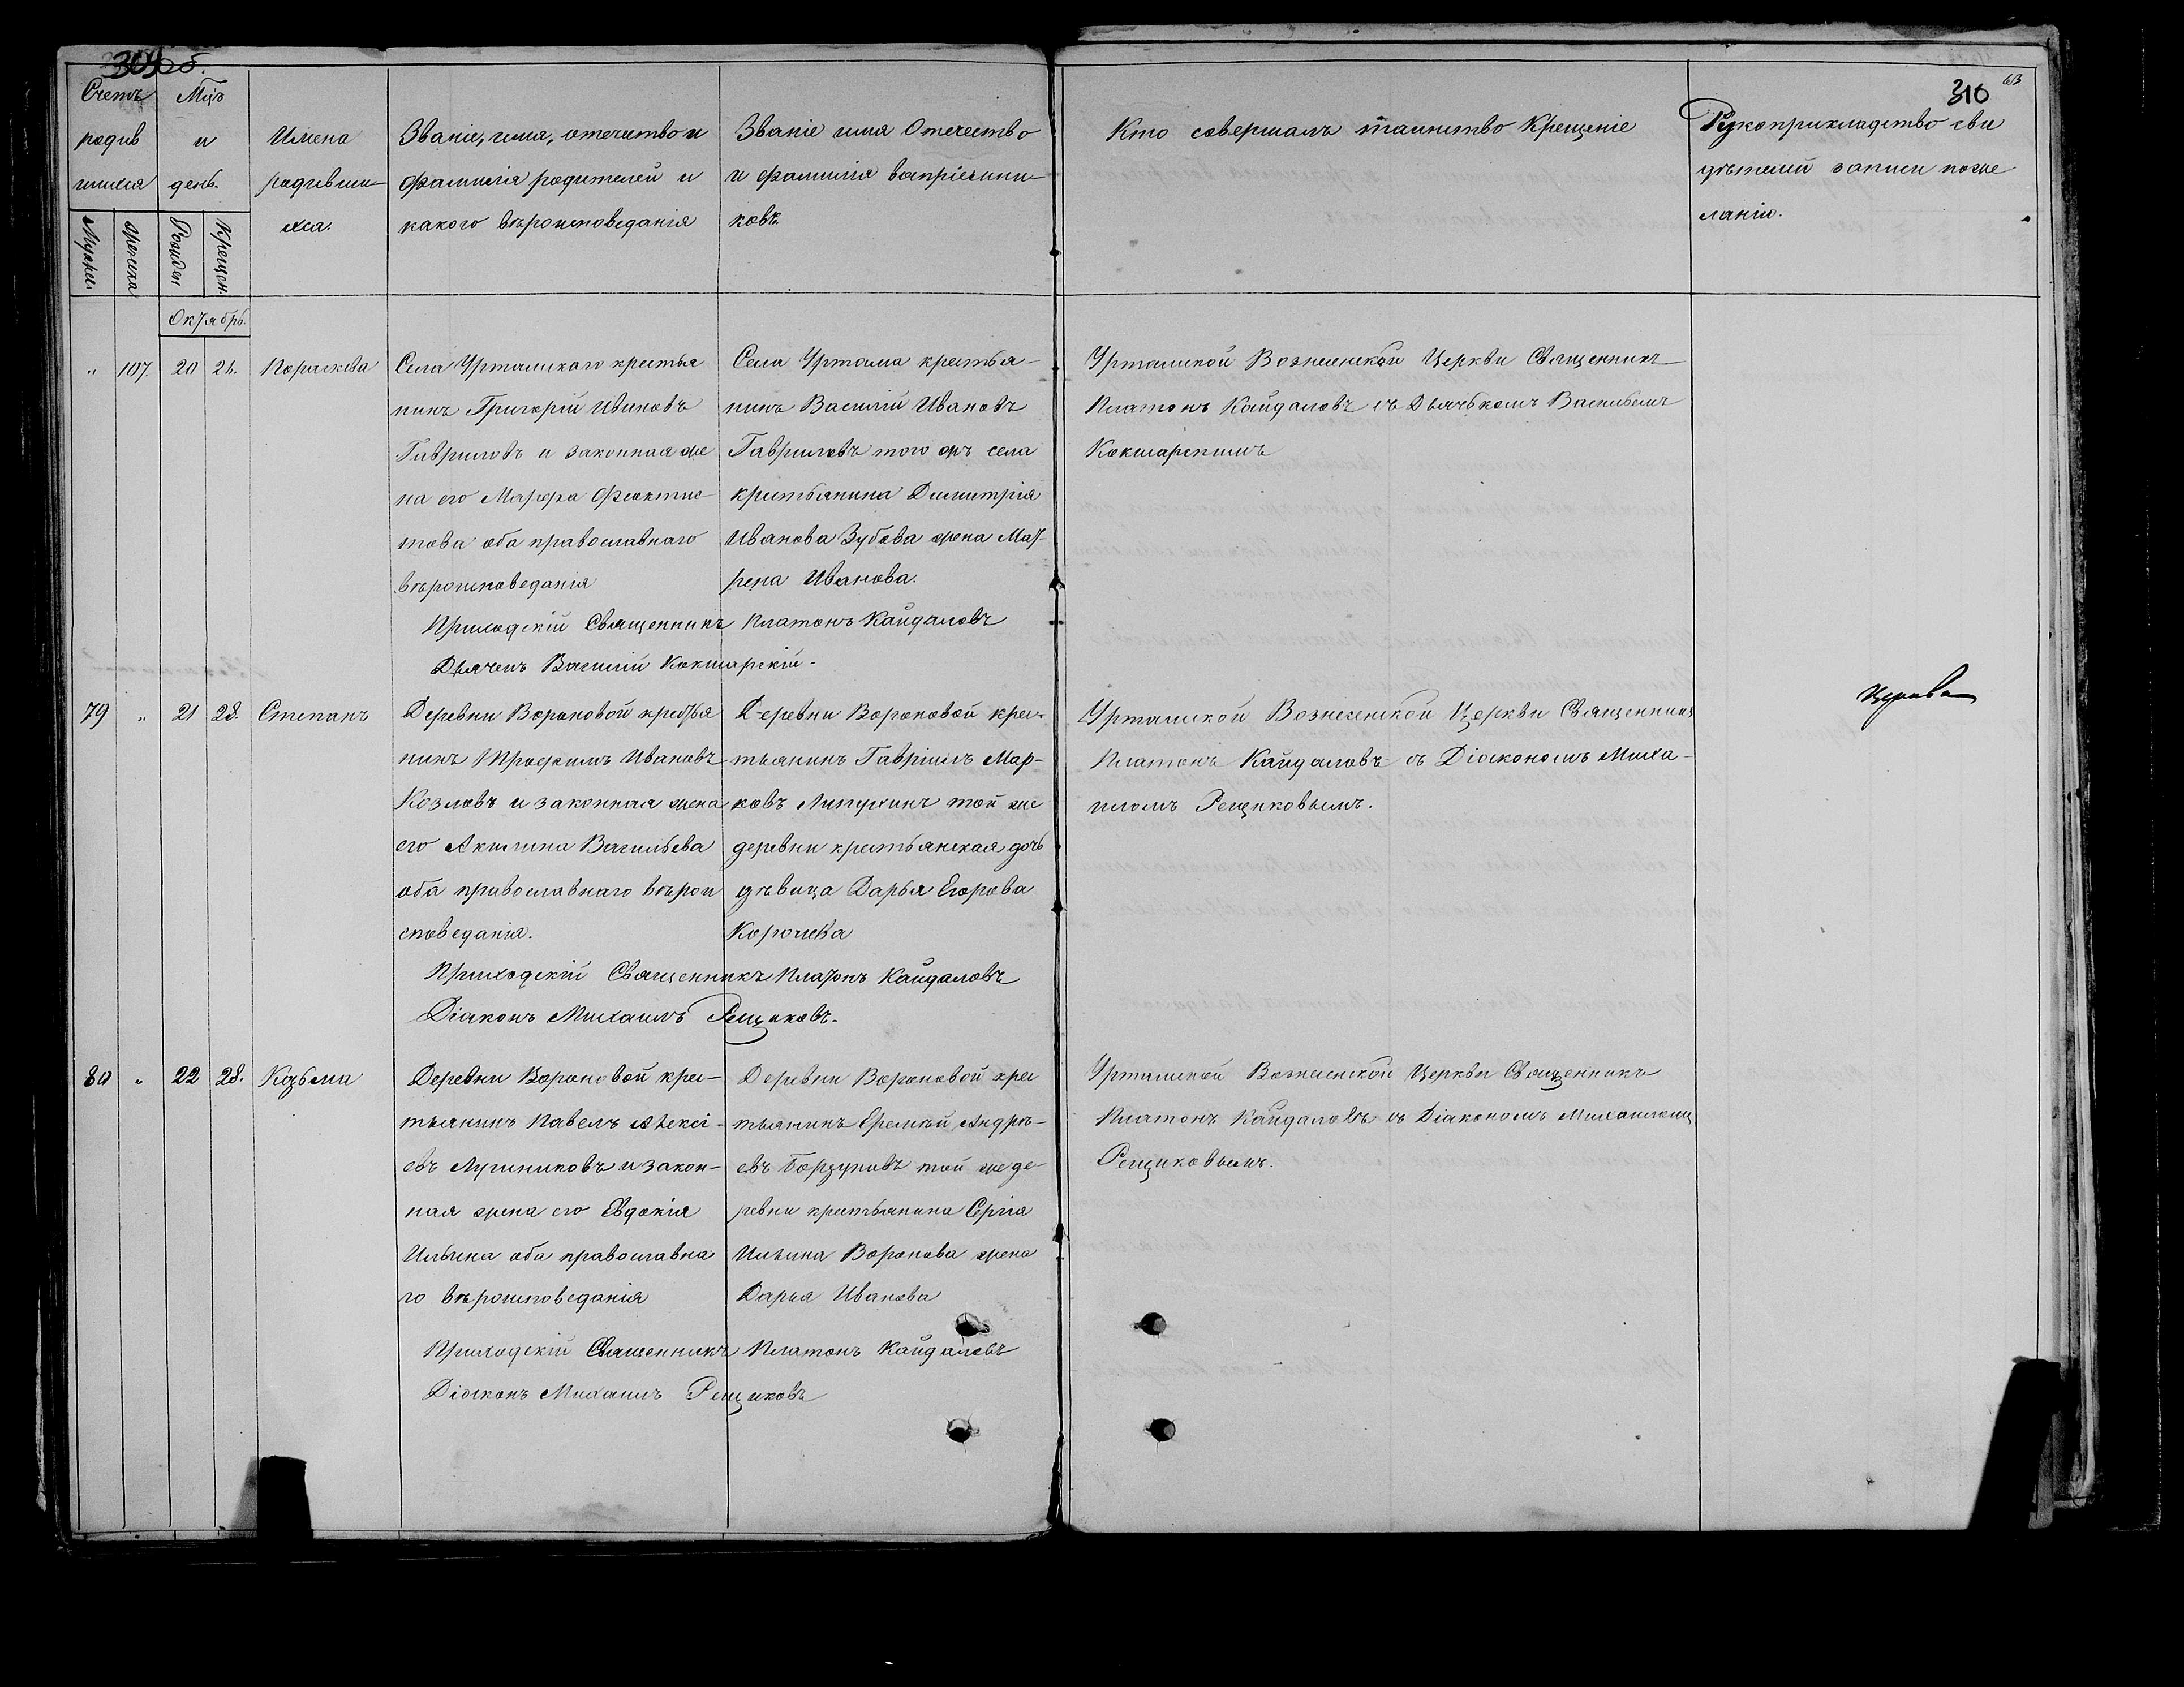 309 об.
310
613
Счетъ
родив
шихся
Мужеск
Женска
Мцъ
и
день.
Рожден
Крещен.
Имена
родивши-
хся.
Званіе, имя, отечество и
фамилія родителей и
какого вѣроисповеданія
Званіе имя Отечество
и фамилія воспріемни-
ковъ
Кто совершалъ таинство Крещеніе
Рукоприкладство сви
дѣтелей записи по же
ланію.
Октябрь.
„ 107. 20 21. Пораскева
Села Урtамскаго крестья
нинъ Григорій Ивановъ
Гавриловъ и законная же
на его Марфа Феоктис-
това оба православнаго
вѣроисповеданія
Села Уртама крестья-
нинъ Василій Ивановъ
Гавриловъ того жъ села
крестьянина Димитрія
Иванова Зубова жена Мат-
рена Иванова.
Уртамской Вознесенской Церкви Священникъ
Платонъ Кайдаловъ съ Дьячькомъ Васильемъ
Кокшарскимъ
Приходскій Священникъ Платонъ Кайдаловъ
Дьячекъ Василій Кокшарскій.
79 „ 21 28. Степанъ
Деревни Вороновой крестья
нинъ Трофимъ Ивановъ
Козловъ и законная жена
его Акилина Васильева
оба православнаго вѣрои
споведанія.
Деревни Вороновой крес-
тьянинъ Гавріилъ Мар-
ковъ Липухинъ той же
деревни крестьянская дочь
дѣвица Дарья Егорова
Уртамской Вознесенской Церкви Священникъ
Платонъ Кайдаловъ съ Діакономъ Миха-
иломъ Рещиковымъ.
Приходскій Священникъ Платонъ Кайдаловъ
Діаконъ Михаилъ Рещиковъ.
80 „ 22 28. Козьма
Деревни Вороновой крес-
тьянинъ Павелъ Алексі-
евъ Лучниковъ и закон-
ная жена его Евдокія
Ильина оба православна
го вѣроисповеданія
Деревни Вороновой крес
тьянинъ Еремѣй Андрѣ-
евъ Борзуновъ той же де-
ревни крестьянина Сергіа
Ильина Воронова жена
Дарья Иванова
Уртамской Вознесенской Церкви Священникъ
Платонъ Кайдаловъ съ Діакономъ Михаиломъ
Рещиковымъ.
Приходскій Священникъ Платонъ Кайдаловъ
Діаконъ Михаилъ Рещиковъ